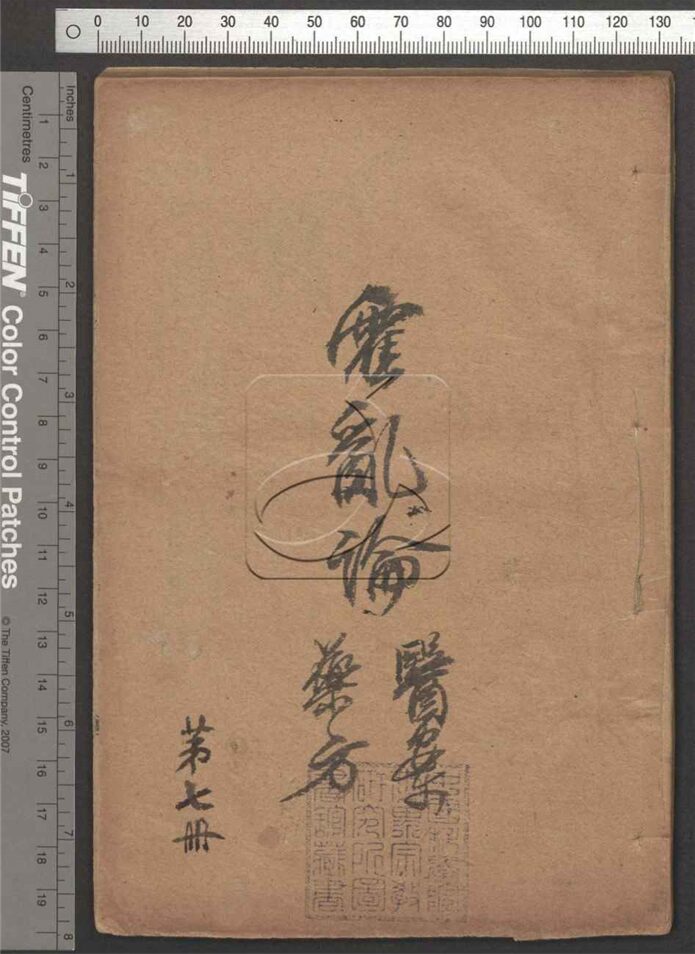 0 10 20 30 40 50 60 70 80 90 100 110 120 130
Inches
Centimetres
1 2 3 4 5 6 7 8
1 2 3 4 5 6 7 8 9 10 11 12 13 14 15 16 17 18 19
TIFFEN® Color Control Patches
© The Tiffen Company, 2007
霍亂論
醫案
藥方
苐七冊